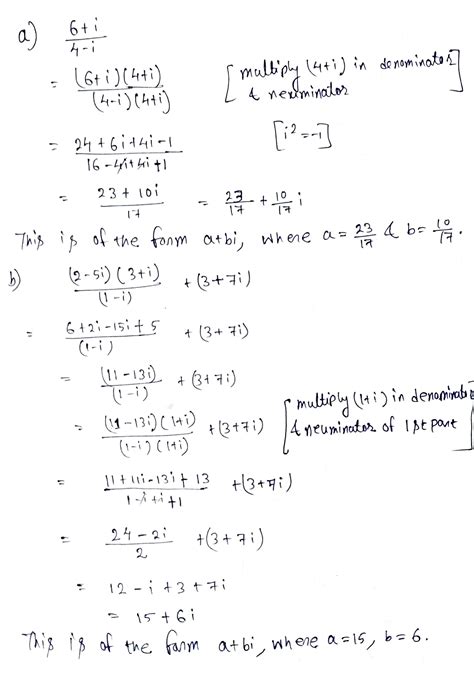 a) (6+i)/(4-i)
= (6+i)(4+i)/(4-i)(4+i) [multiply (4+i) in denominator & neuminator
= (24+6i+4i-1)/(16-4i+4i+1) [i²=-1]
= (23+10i)/17 = 23/17 + 10/17 i
This is of the form a+bi, where a=23/17 & b=10/17.
b) (2-5i)(3+i)/(1-i) +(3+7i)
= (6+2i-15i+5)/(1-i) +(3+7i)
= (11-13i)/(1-i) +(3+7i)
= (11-13i)(1+i)/(1-i)(1+i) +(3+7i) [multiply (1+i) in denominator & neuminator of 1st part
= (11+11i-13i+13)/(1-i+i+1) +(3+7i)
= (24-2i)/2 +(3+7i)
= 12-i+3+7i
= 15+6i
This is of the form a+bi, where a=15, b=6.